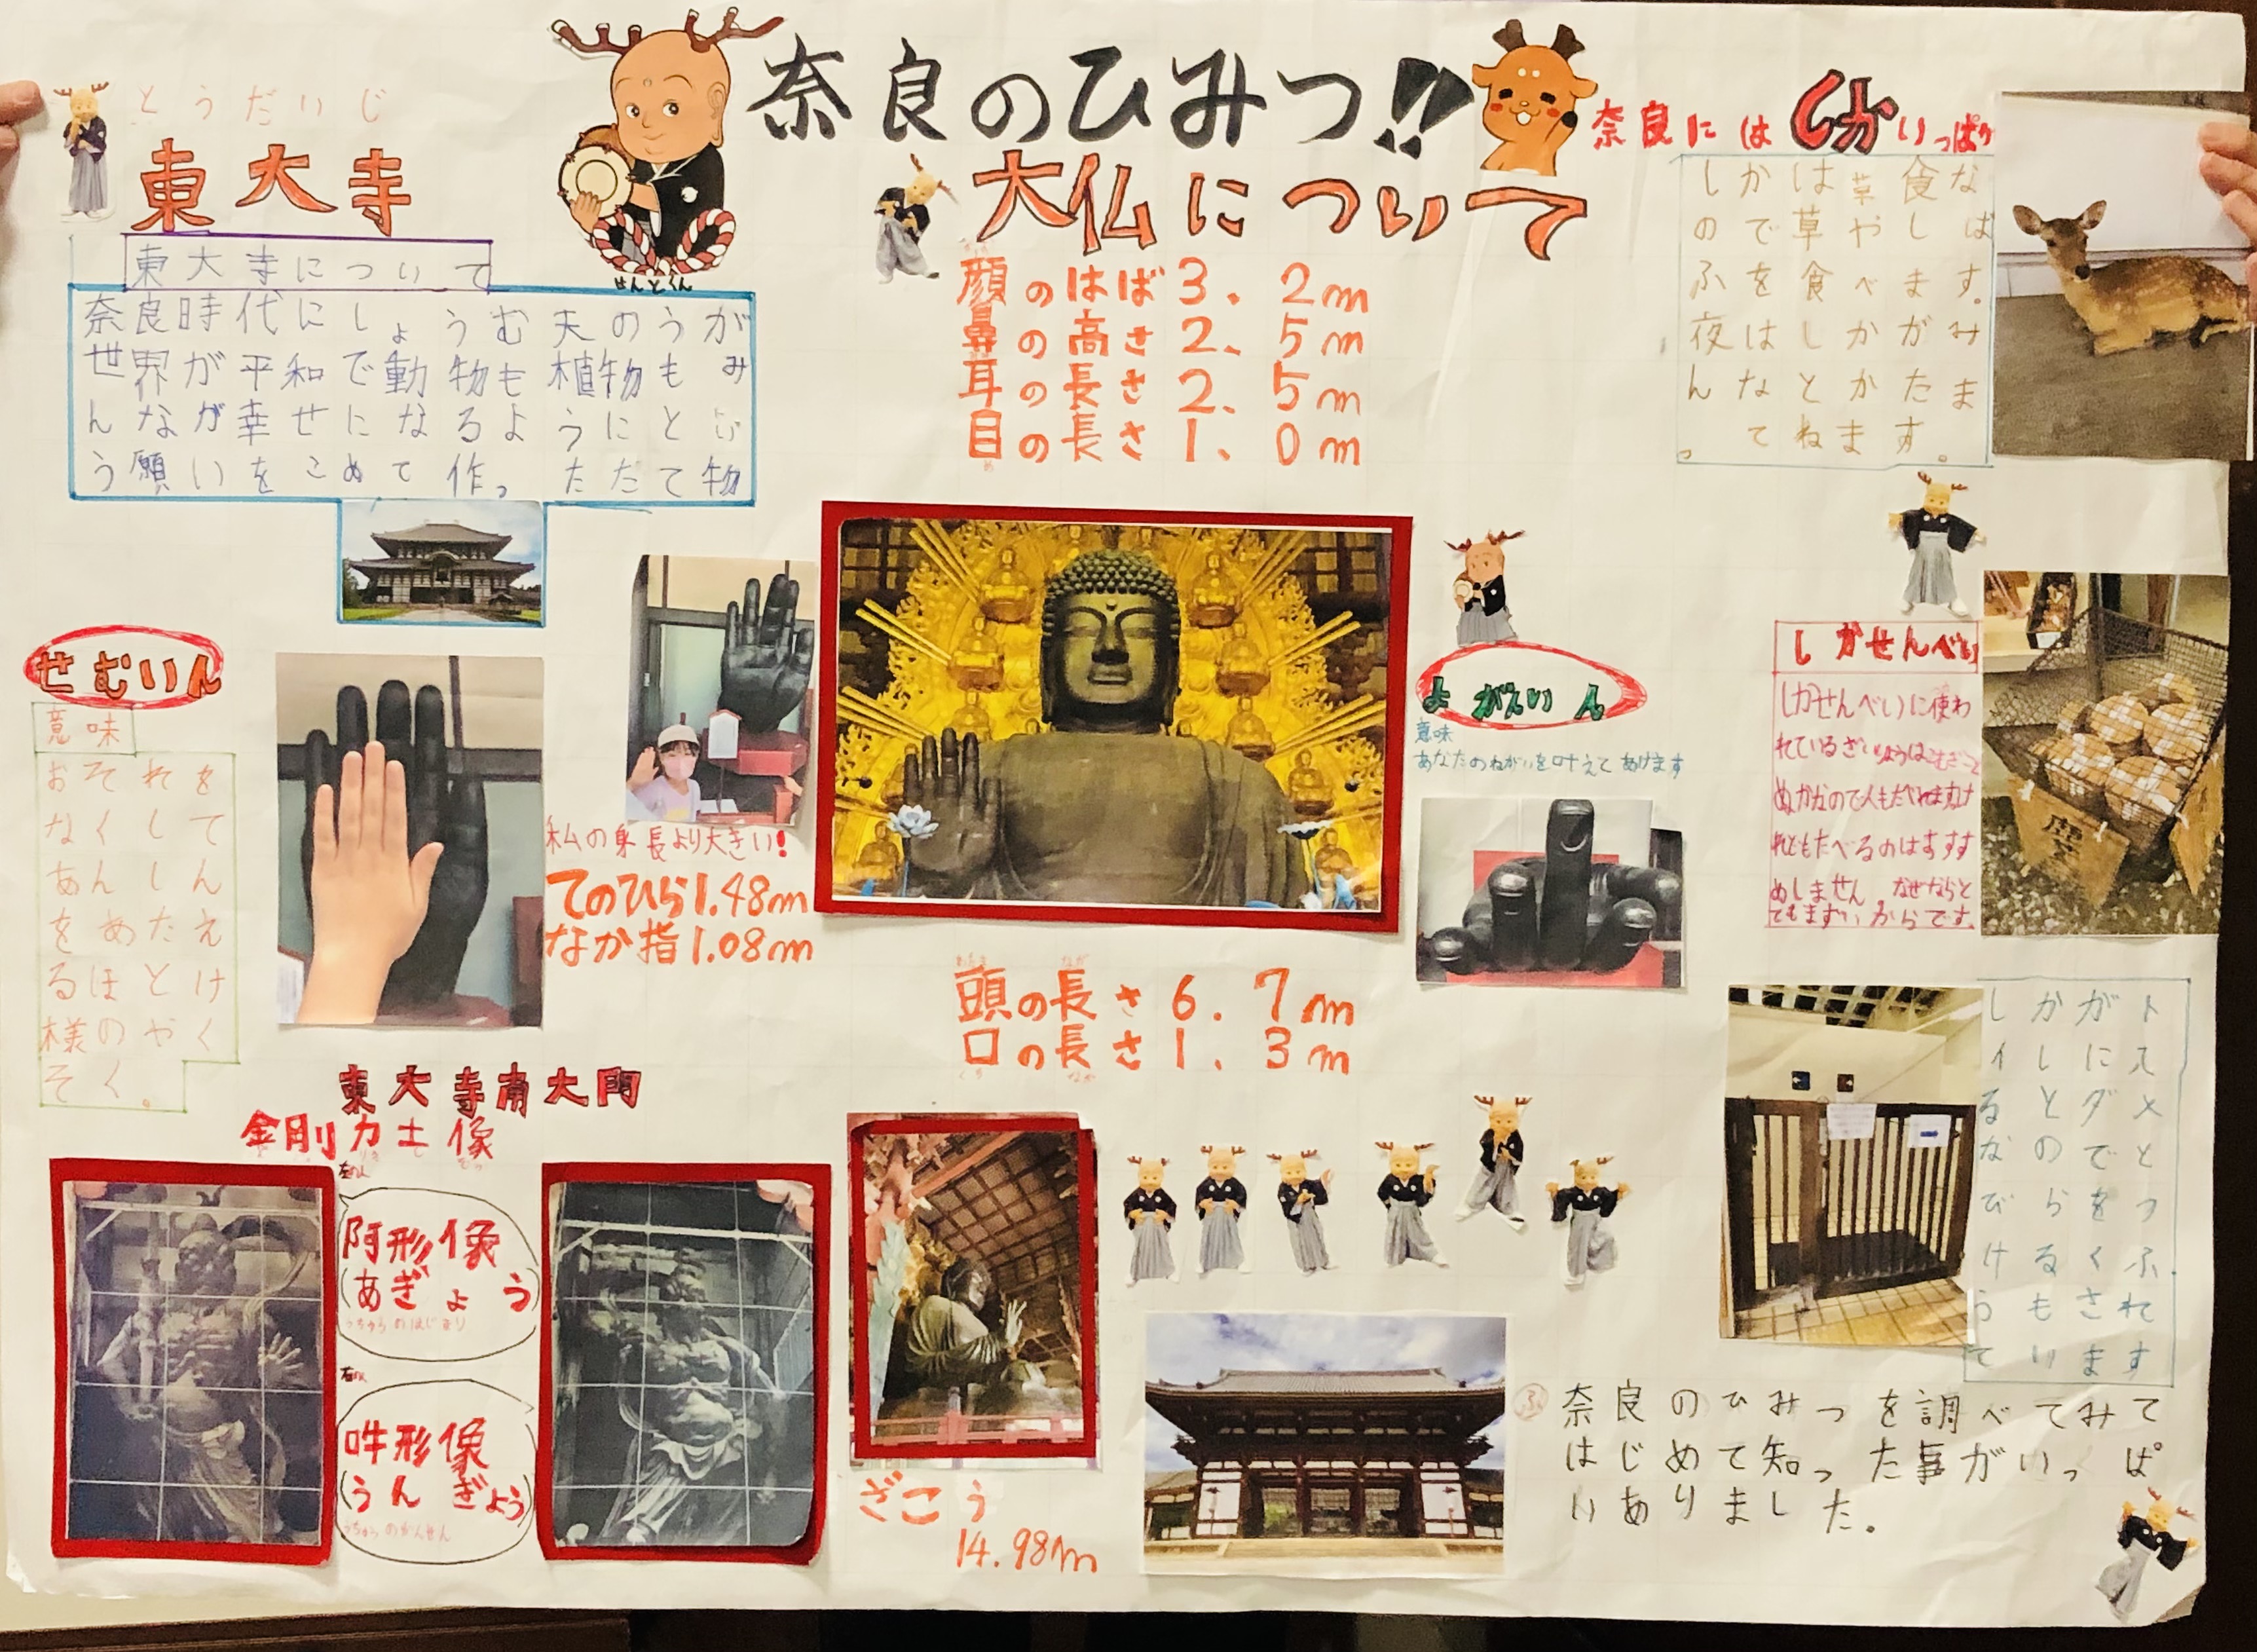 奈良のひみつ!!
とうだいじ
東大寺
せんとくん
東大寺について
奈良時代にしょうむ天のうが
世界が平和で動物も植物もみ
んなが幸せになるようにとい
う願いをこめて作ったたて物
大仏について
顔のはば3.2m
鼻の高さ2.5m
耳の長さ2.5m
目の長さ1.0m
め
奈良にはしかいっぱい
しかは草食な
ので草やしば
ふを食べます。
夜はしかがみ
んなとかたま
ってねます。
せむいん
意味
おそれを
なくして
あんしん
をあたえ
るほとけ
様のやく
そく。
私の身長より大きい!
てのひら1.48m
なか指1.08m
よがんいん
意味
あなたのねがいを叶えてあげます
しかせんべい
しかせんべいに使わ
れているざいりょうはこむぎこと
ぬかなので人もたべれますけ
れどもたべるのはすす
めしません なぜならと
てもまずいからです。
頭の長さ6.7m
口の長さ1.3m
くち なが
東大寺南大門
金剛力士像
阿形像
(あぎょう)
うちゅうのはじまり
吽形像
(うんぎょう)
ざこう
14.98m
しかがト
イレに入
奈良のひみつを調べてみて
はじめて知った事がいっぱ
いありました。